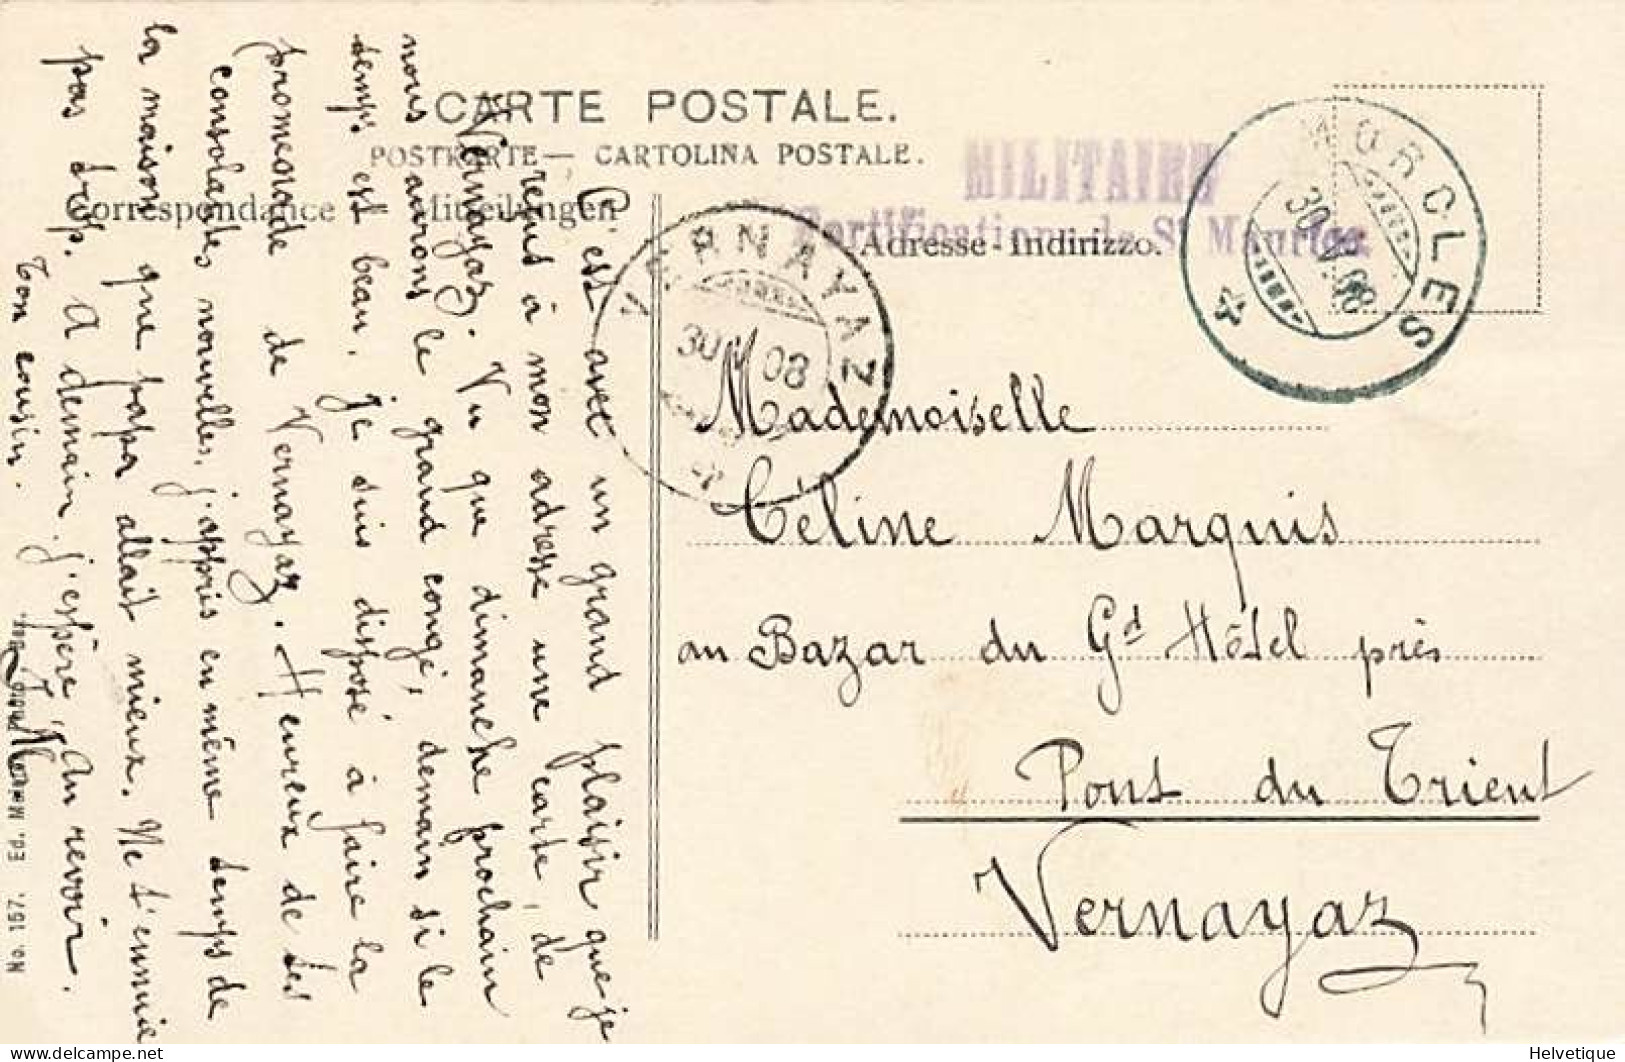 CARTE POSTALE.
POSTKARTE — CARTOLINA POSTALE.
Correspondance Mitteilungen
Adresse - Indirizzo.
MILITAIRE
Fortifications de St Maurice
MORCLES
30 08
VERNAYAZ
30 08
Mademoiselle
Céline Marquis
au Bazar du Gd Hôtel près
Pont du Trient
Vernayaz
C'est avec un grand plaisir que je
reçus à mon adresse une carte, de
Vernayaz. Vu que dimanche prochain
nous aurons le grand congé, demain si le
temps est beau, je suis disposé à faire la
promenade de Vernayaz. Heureux de tes
consolantes nouvelles, j'appris en même temps de
la maison que papa allait mieux. Ne t'ennuie
pas trop. A demain j'espère, Au revoir.
Ton cousin.
No. 157. Ed.
Helvetique